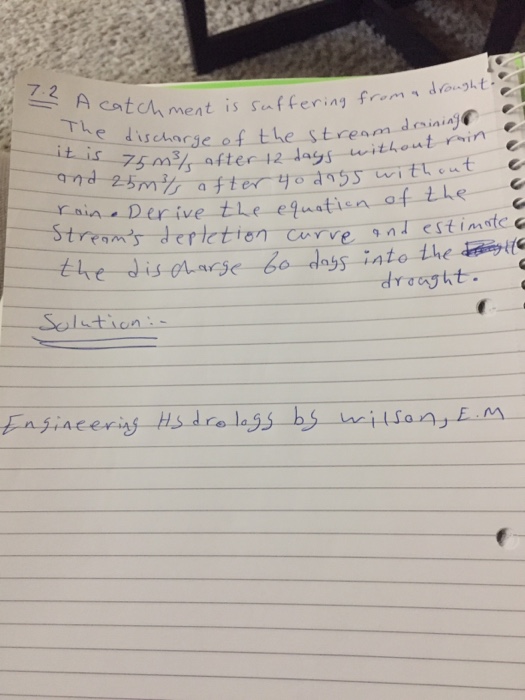 7.2 A catchment is suffering from a drought.
The discharge of the stream draining
it is 75 m³/s after 12 days without rain
and 25 m³/s after 40 days without
rain. Derive the equation of the
stream's depletion curve and estimate
the discharge 60 days into the
drought.
Solution:-
Engineering Hydrology by Wilson, E.M